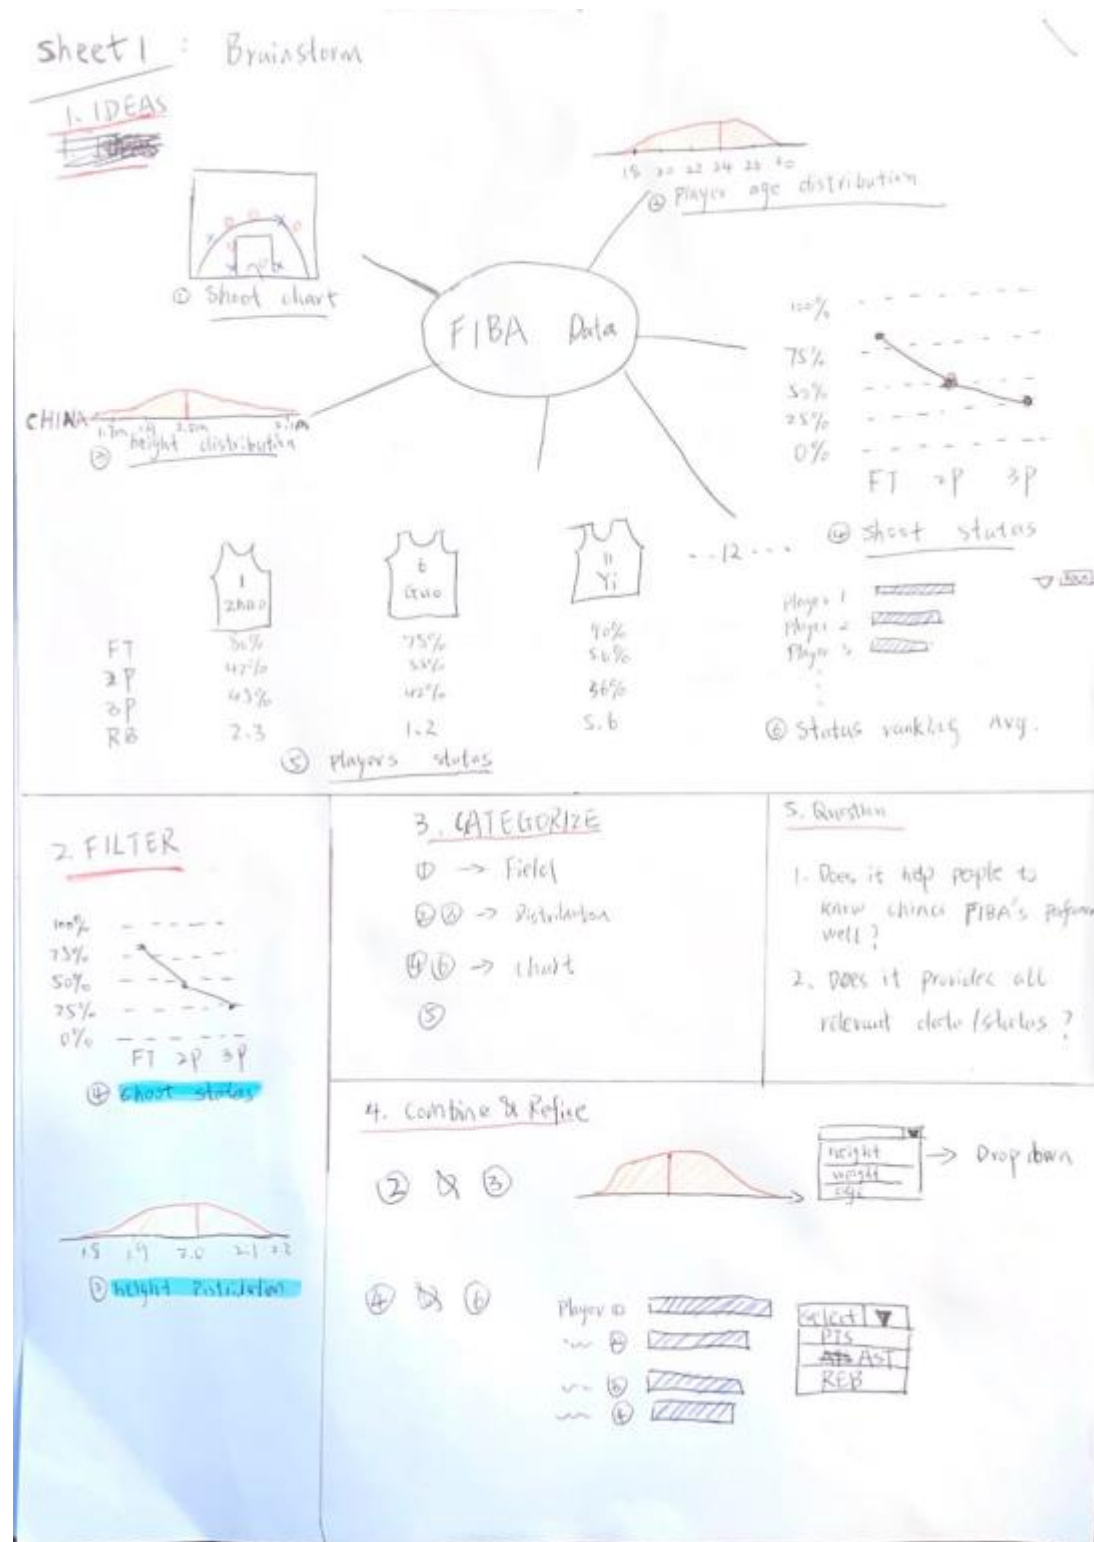 Sheet 1 : Brainstorm
1. IDEAS
18 20 22 24 26 30
② Player age distribution
① Shoot chart
FIBA Data
100%
75%
50%
25%
0%
FT 2P 3P
④ Shoot status
CHINA
1.7m 1.9 2.0m 2.1m
③ height distribution
1 Zhao
6 Guo
11 Yi
--12---
FT 75% 90%
2P 47% 55% 56%
3P 43% 42% 36%
RB 2.3 1.2 5.6
⑤ players status
Player 1
Player 2
Player 3
⑥ Status ranking Avg.
2. FILTER
100%
75%
50%
25%
0%
FT 2P 3P
④ Shoot status
1.8 1.9 2.0 2.1 2.2
③ height Distribution
3. CATEGORIZE
① → Field
②③ → Distribution
④⑥ → Chart
⑤
5. Question
1. Does it help people to
know china FIBA's
well?
2. Does it provides all
relevant data/status?
4. Combine & Refine
② & ③
height
weight
age
→ Drop down
④ & ⑥
Player ①
②
③
④
Select
PTS
AST
REB